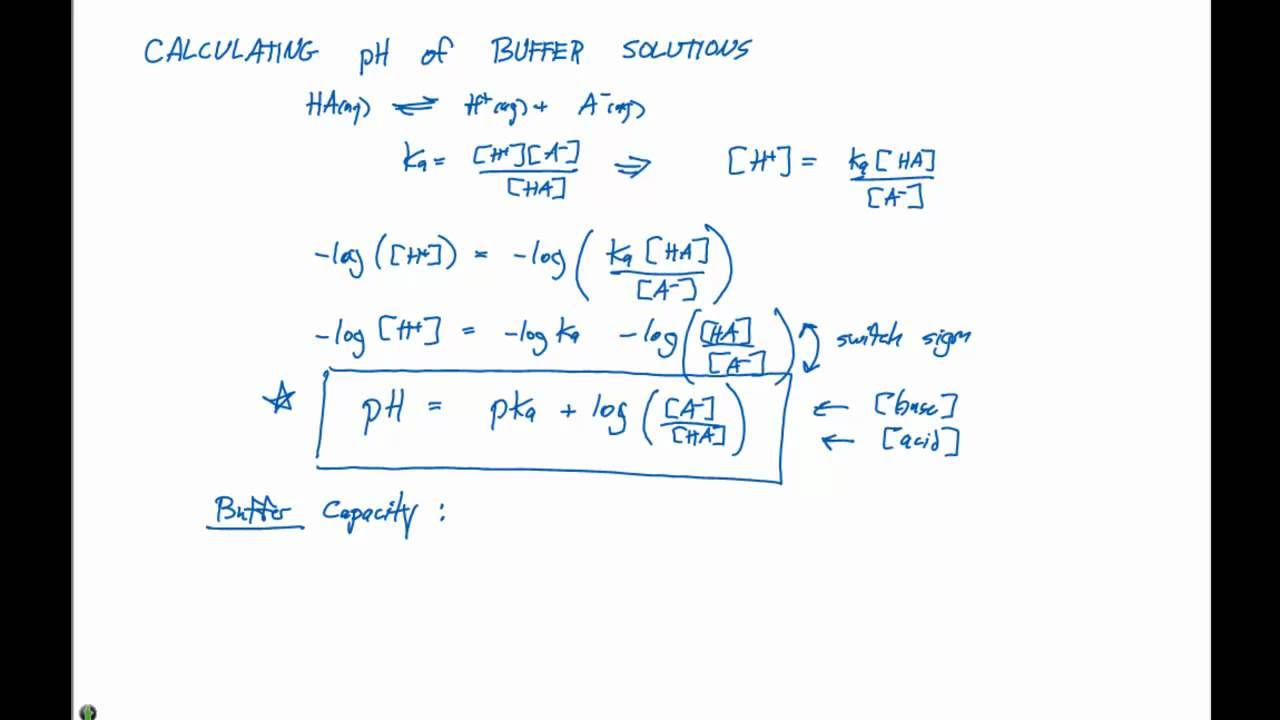 CALCULATING pH of BUFFER SOLUTIONS
HA(aq) ⇌ H⁺(aq) + A⁻(aq)
Ka = [H⁺][A⁻] / [HA] ⇒ [H⁺] = Ka [HA] / [A⁻]
-log([H⁺]) = -log(Ka [HA] / [A⁻])
-log [H⁺] = -log Ka -log([HA] / [A⁻]) switch sign
☆ pH = pKa + log([A⁻] / [HA]) ← [base]
← [acid]
Buffer Capacity :